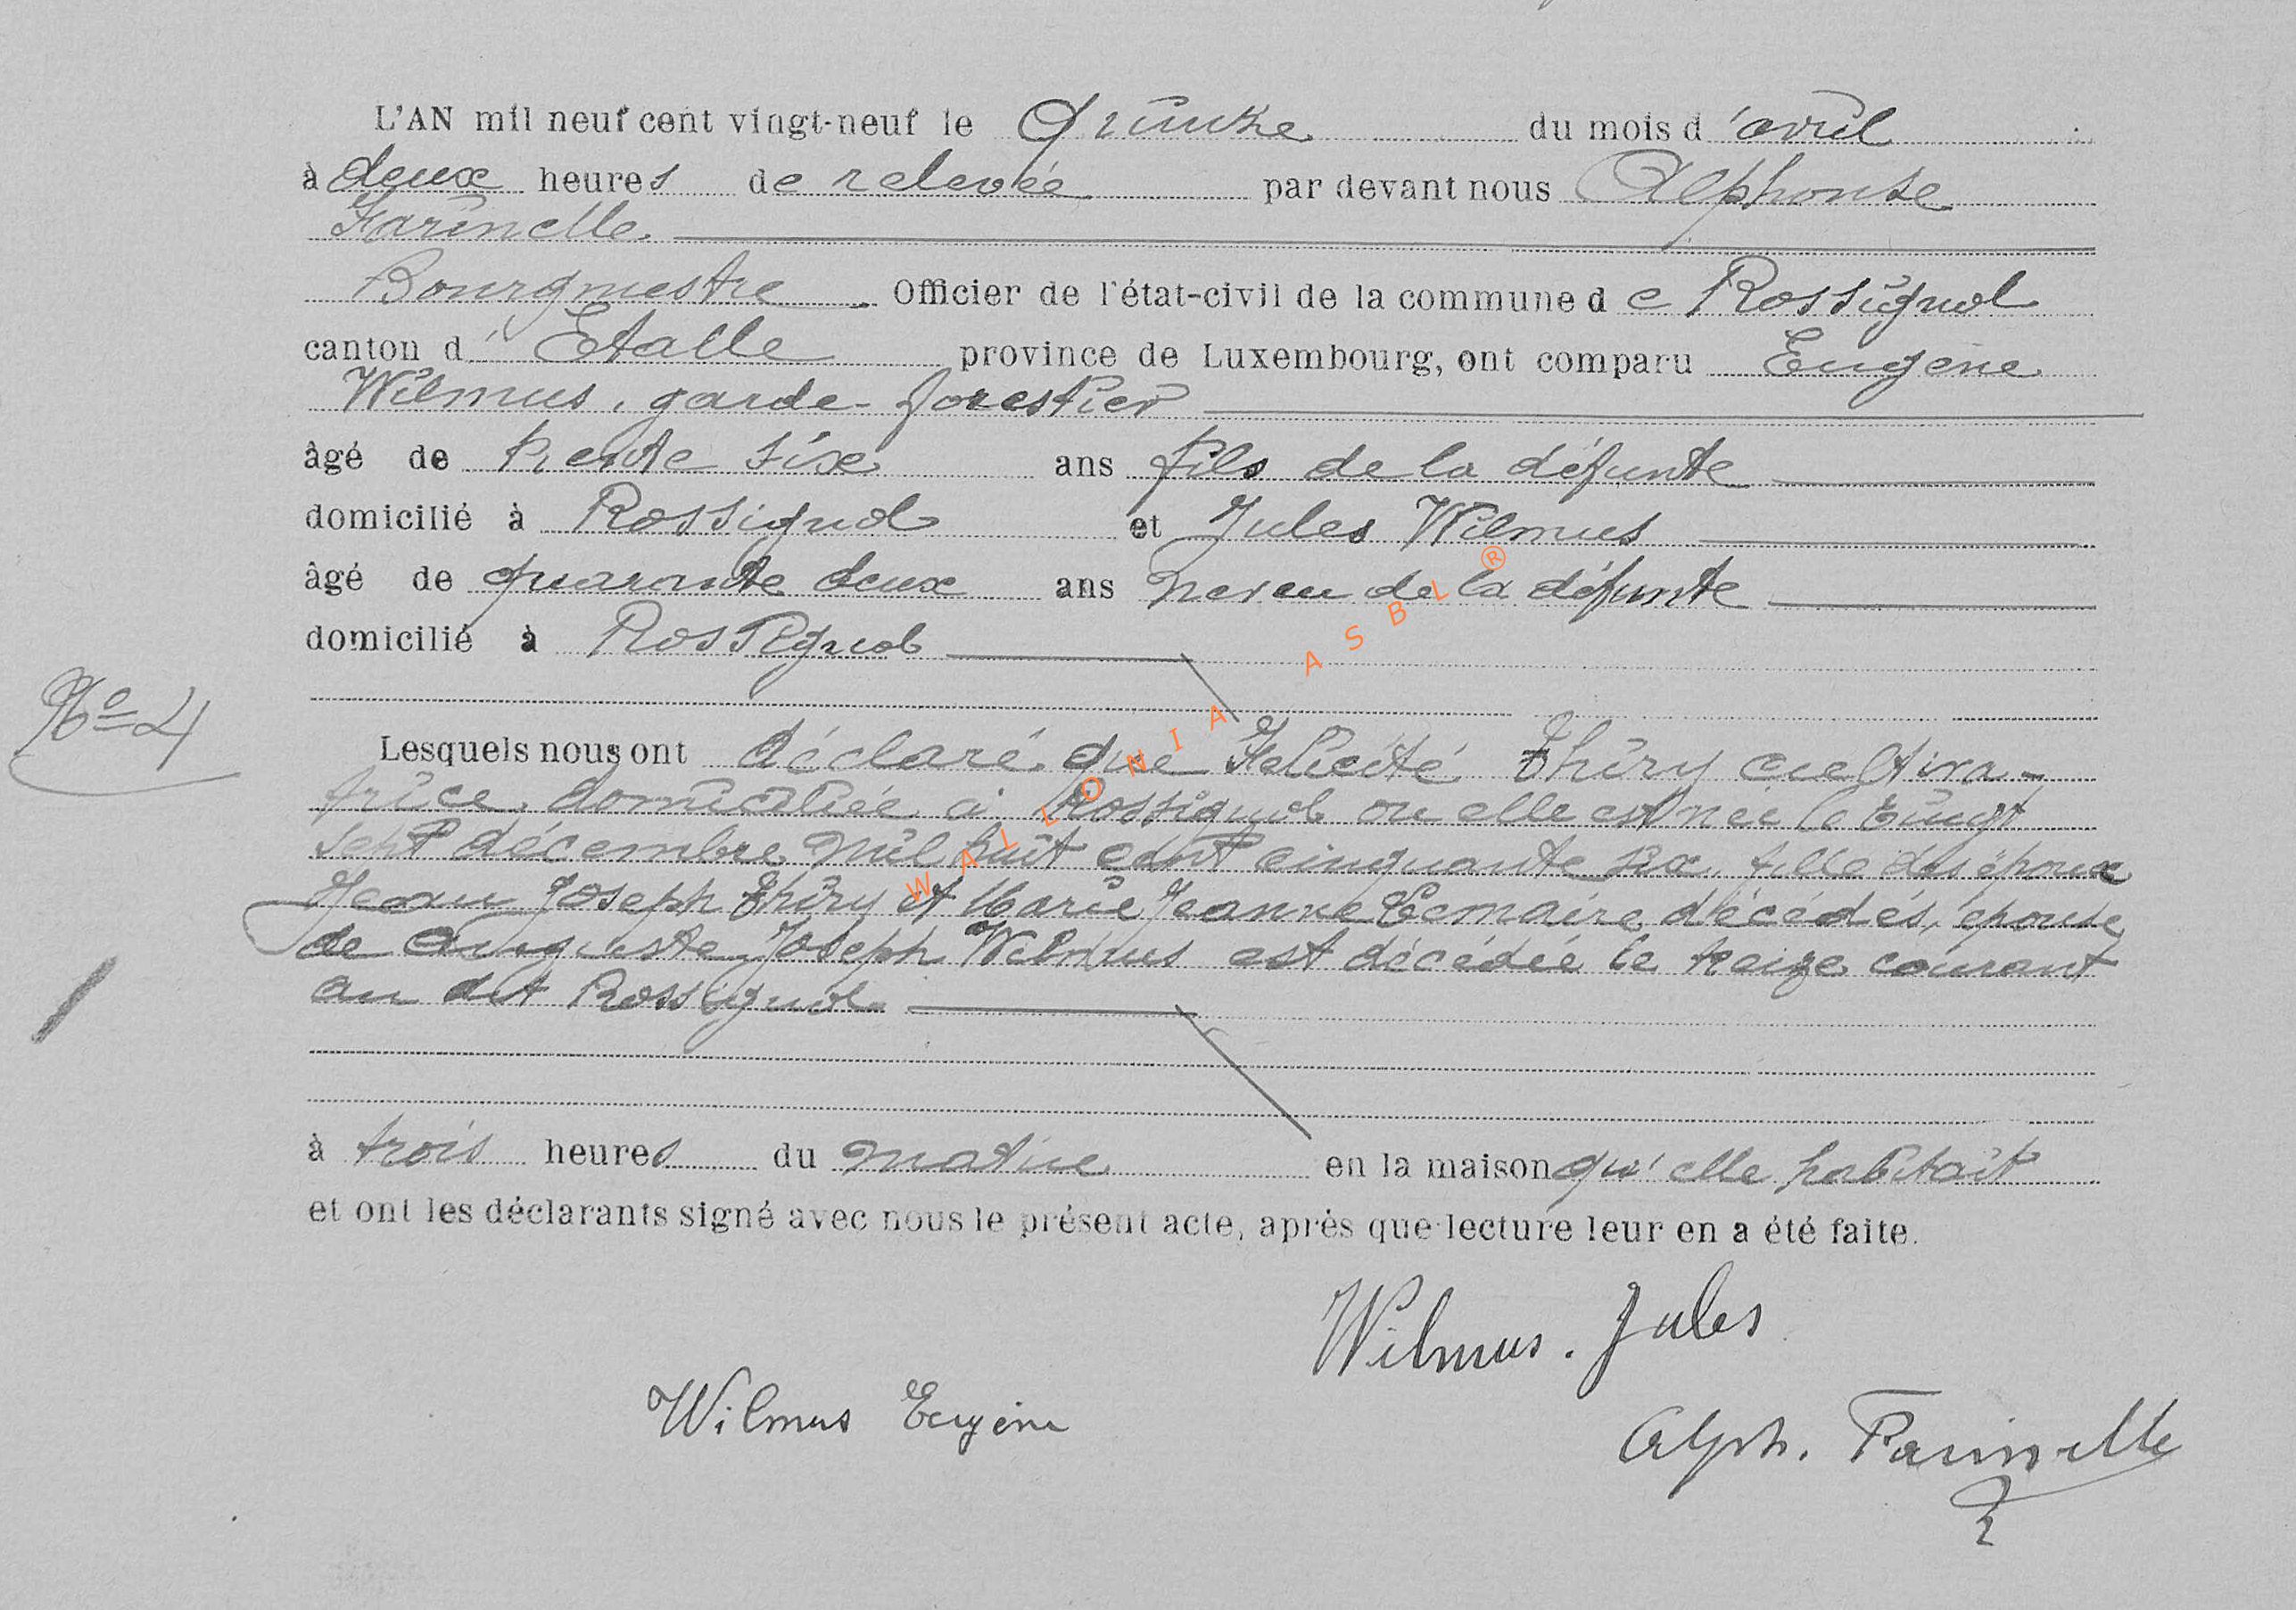 L'AN mil neuf cent vingt-neuf le quinze du mois d'avril
à deux heures de relevée par devant nous Alphonse
Farinelle
Bourgmestre Officier de l'état-civil de la commune de Rossignol
canton d'Etalle province de Luxembourg, ont comparu Eugène
Wilmus, garde-forestier
âgé de trente six ans fils de la défunte
domicilié à Rossignol et Jules Wilmus
âgé de quarante deux ans neveu de la défunte
domicilié à Rossignol
No 4
Lesquels nous ont déclaré que Félicité Thiry cultiva-
trice, domiciliée à Rossignol ou elle est née le vingt
sept décembre mil huit cent cinquante six, fille des époux
Jean Joseph Thiry et Marie Jeanne Lemaire, décédés, épouse
de Auguste Joseph Wilmus est décédée le treize courant
au dit Rossignol
à trois heures du matin en la maison qu'elle habitait
et ont les déclarants signé avec nous le présent acte, après que lecture leur en a été faite.
Wilmus. Jules
Wilmus Eugène
Alph. Farinelle
WALLONIA ASBL ®